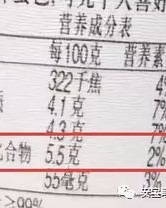 营养成分表
每100克 营养素
322千焦 4
4.1克 7
4.3克 7%
合物 5.5克 2%
55毫克 3%
≥99%